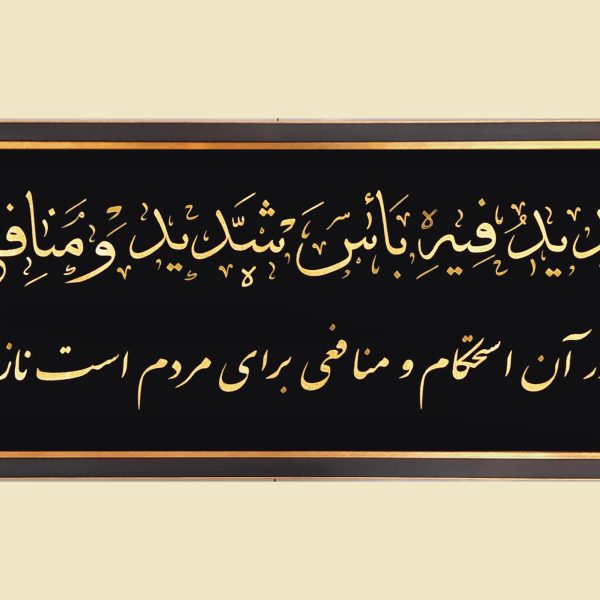 دیدُ فِیهِ بَأسَ شَّدِیدِ وَ مَنافِع
در آن استحکام و منافعی برای مردم است ناز